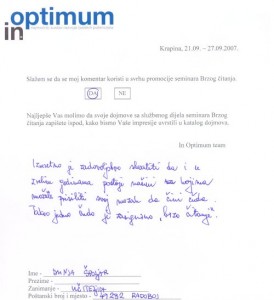 in optimum
Krapina, 21.09. - 27.09.2007.
Slažem se da se moj komentar koristi u svrhu promocije seminara Brzog čitanja.
DA NE
Najljepše Vas molimo da svoje dojmove sa službenog dijela seminara Brzog
čitanja zapišete ispod, kako bismo Vaše impresije uvrstili u katalog dojmova.
In Optimum team
Izuzetno je zadovoljstvo shvatiti da i u
godinama postoji način na kojima
možete prisiliti svoj mozak da čini čuda.
Tako jedno čudo je zasigurno „brzo čitanje“.
Ime - DUNJA
Prezime -
Zanimanje - UČITELJICA
Poštanski broj i mjesto - 49232 RADOBOJ